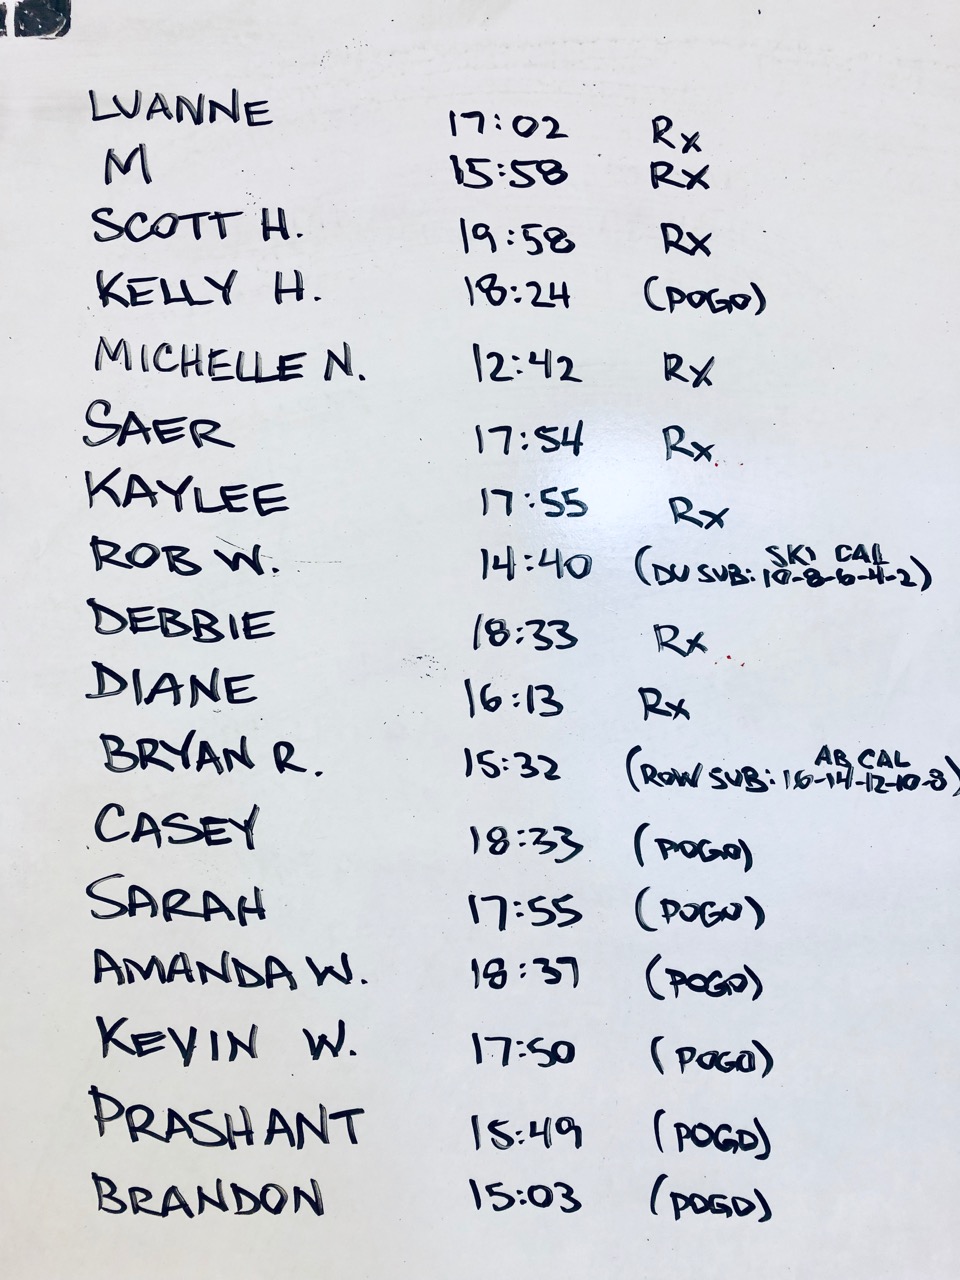 LUANNE 17:02 Rx
M 15:58 Rx
SCOTT H. 19:58 Rx
KELLY H. 18:24 (POGO)
MICHELLE N. 12:42 Rx
SAER 17:54 Rx
KAYLEE 17:55 Rx
ROB W. 14:40 (DU SUB: SKI CAL 10-8-6-4-2)
DEBBIE 18:33 Rx
DIANE 16:13 Rx
BRYAN R. 15:32 (ROW SUB: AB CAL 16-14-12-10-8)
CASEY 18:33 (POGO)
SARAH 17:55 (POGO)
AMANDA W. 18:37 (POGO)
KEVIN W. 17:50 (POGO)
PRASHANT 15:49 (POGO)
BRANDON 15:03 (POGO)